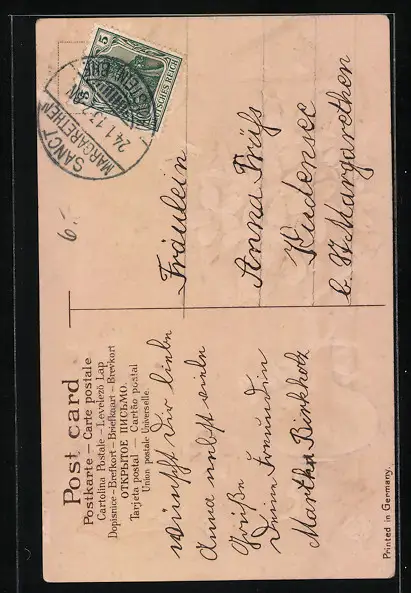 Post card
Postkarte – Carte postale
Cartolina Postale – Levelező Lap
Dopisnice – Brefkort – Briefkaart – Brevkort
ОТКРЫТОЕ ПИСЬМО.
Tarjeta postal – Cartão postal
Union postale Universelle.
wünscht Dir liebe
Anna nebst vielen
Grüße
Deine Freundin
Martha Birkholz
5
5
DEUTSCHES REICH
SANCT
MARGARETHEN
24.1.13
6.-
Fräulein
Anna Prüß
Kudensee
b. St. Margarethen
Printed in Germany.